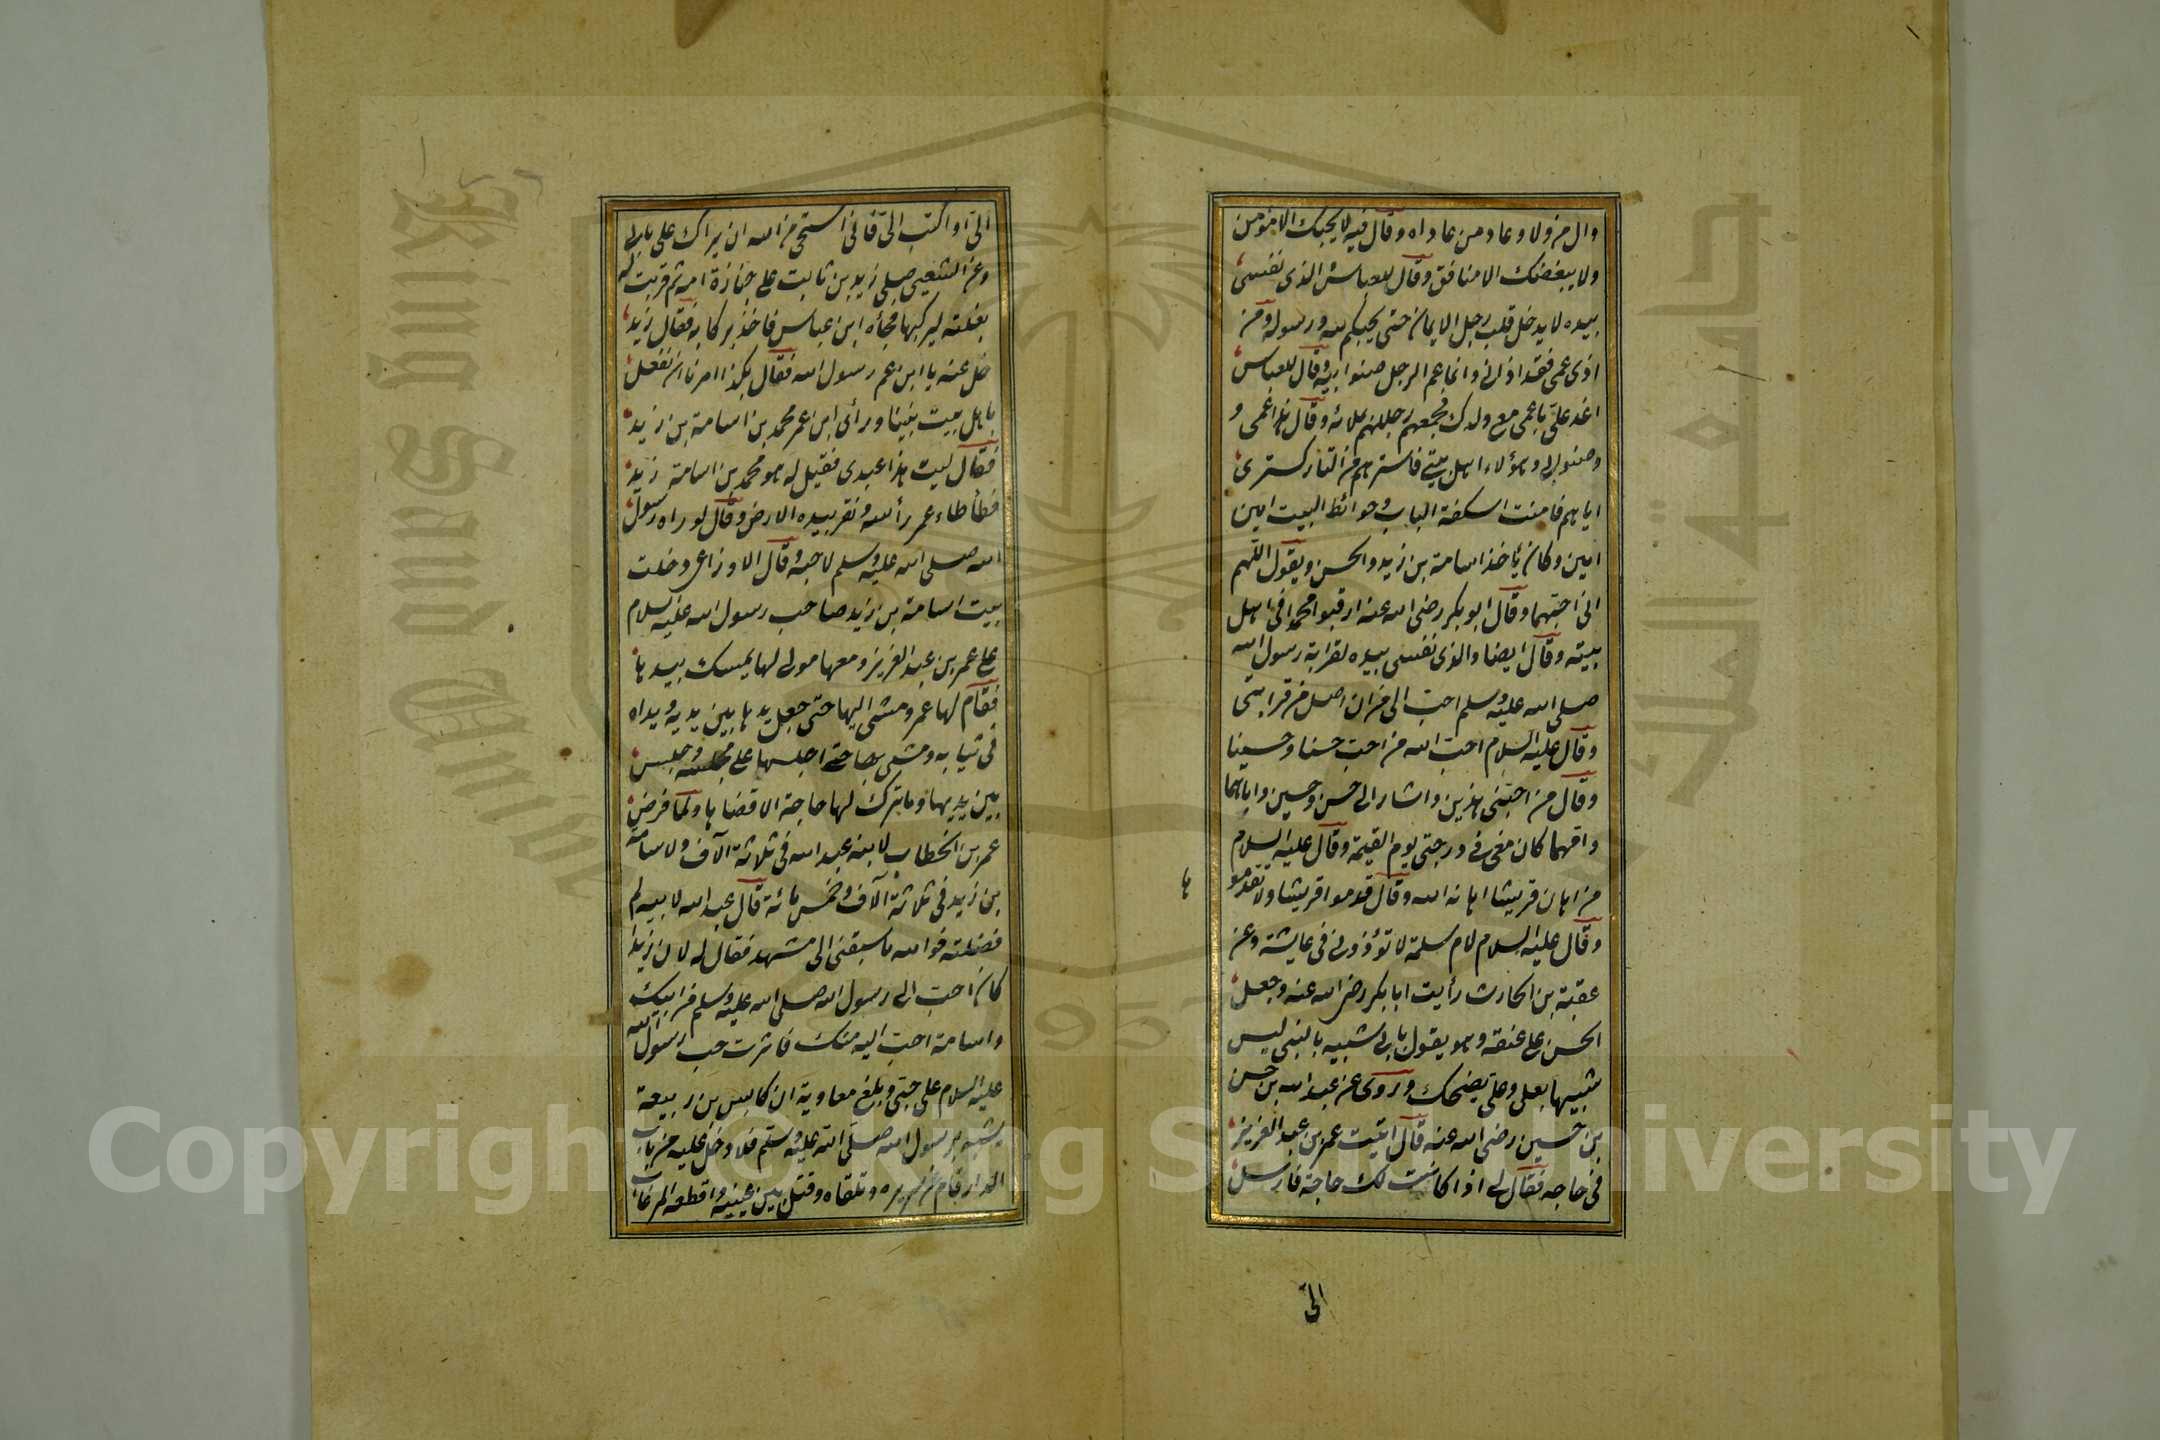 وال من ولاه وعاد من عاداه وقال فيه لا يحبك الا مؤمن
ولا يبغضك الا منافق وقال للعباس والذى نفسى
بيده لا يدخل قلب رجل الايمان حتى يحبكم لله ورسوله ومن
اذى عمى فقد اذانى وانما عم الرجل صنو ابيه وقال للعباس
اغد على يا عمى مع ولدك فجمعهم وجللهم بملائه وقال هذا عمى و
وصنو ابى وهؤلاء اهل بيتى فاسترهم من النار كسترى
اياهم فامنت اسكفة الباب وحوائط البيت امين
امين وكان يأخذ اسامة بن زيد والحسن ويقول اللهم
انى احبهما وقال ابو بكر رضى الله عنه ارقبوا محمدا فى اهل
بيته وقال ايضا والذى نفسى بيده لقرابة رسول الله
صلى الله عليه وسلم احب الى من ان اصل من قرابتى
وقال عليه السلام احب الله من احب حسنا وحسينا
وقال من احبنى هذين واشار الى حسن وحسين واباهما
وامهما كان معى فى درجتى يوم القيمة وقال عليه السلام
من اهان قريشا اهانه الله وقال قدموا قريشا ولا تقدموها
وقال عليه السلام لام سلمة لا تؤذونى فى عايشة وعن
عقبة بن الحارث رأيت ابا بكر رضى الله عنه وجعل
الحسن على عنقه وهو يقول بابى شبيه بالنبى ليس
شبيها بعلى وعلى يضحك وروى عن عبد الله بن حسن
بن حسين رضى الله عنه قال اتيت عمر بن عبد العزيز
فى حاجه فقال لى اذا كانت لك حاجة فارسل
الى
الى او اكتب الى فانى استحى من الله ان يراك على بابى
وعن الشعبى صلى زيد بن ثابت على جنازة امه ثم قربت له
بغلته ليركبها فجأه ابن عباس فاخذ بركابه فقال زيد
خل عنه يا ابن عم رسول الله فقال هكذا امرنا ان نفعل
باهل بيت نبينا ورأى ابن عمر محمد بن اسامة بن زيد
فقال ليت هذا عبدى فقيل له هو محمد بن اسامة زيد
فطأطاء عمر رأسه ونقر بيده الارض وقال لو راه رسول
الله صلى الله عليه وسلم لاحبه وقال الاوزاعى دخلت
بنت اسامة بن زيد صاحب رسول الله عليه السلام
على عمر بن عبد العزيز ومعها مولى لها يمسك بيدها
فقام لها عمر ومشى اليها حتى جعل يدها بين يديه ويداه
فى ثيابه ومشى بها حتى اجلسها على مجلسه وجلس
بين يديها وما ترك لها حاجة الا قضاها ولما فرض
عمر بن الخطاب لابنه عبد الله فى ثلاثة آلاف ولاسامة
بن زيد فى ثلاثة آلاف وخمس مائة قال عبد الله لابيه لم
فضلته فوالله ما سبقنى الى مشهد فقال له لان زيدا
كان احب الى رسول الله صلى الله عليه وسلم من ابيك
واسامة احب اليه منك فاثرت حب رسول الله
عليه السلام على حبى وبلغ معاوية ان كابس بن ربيعة
يشبه برسول الله صلى الله عليه وسلم فلما دخل عليه من باب
الدار قام عن سريره وتلقاه وقبل بين عينيه واقطعه المرغاب
Copyright © King Saud University
King Saud University
1957